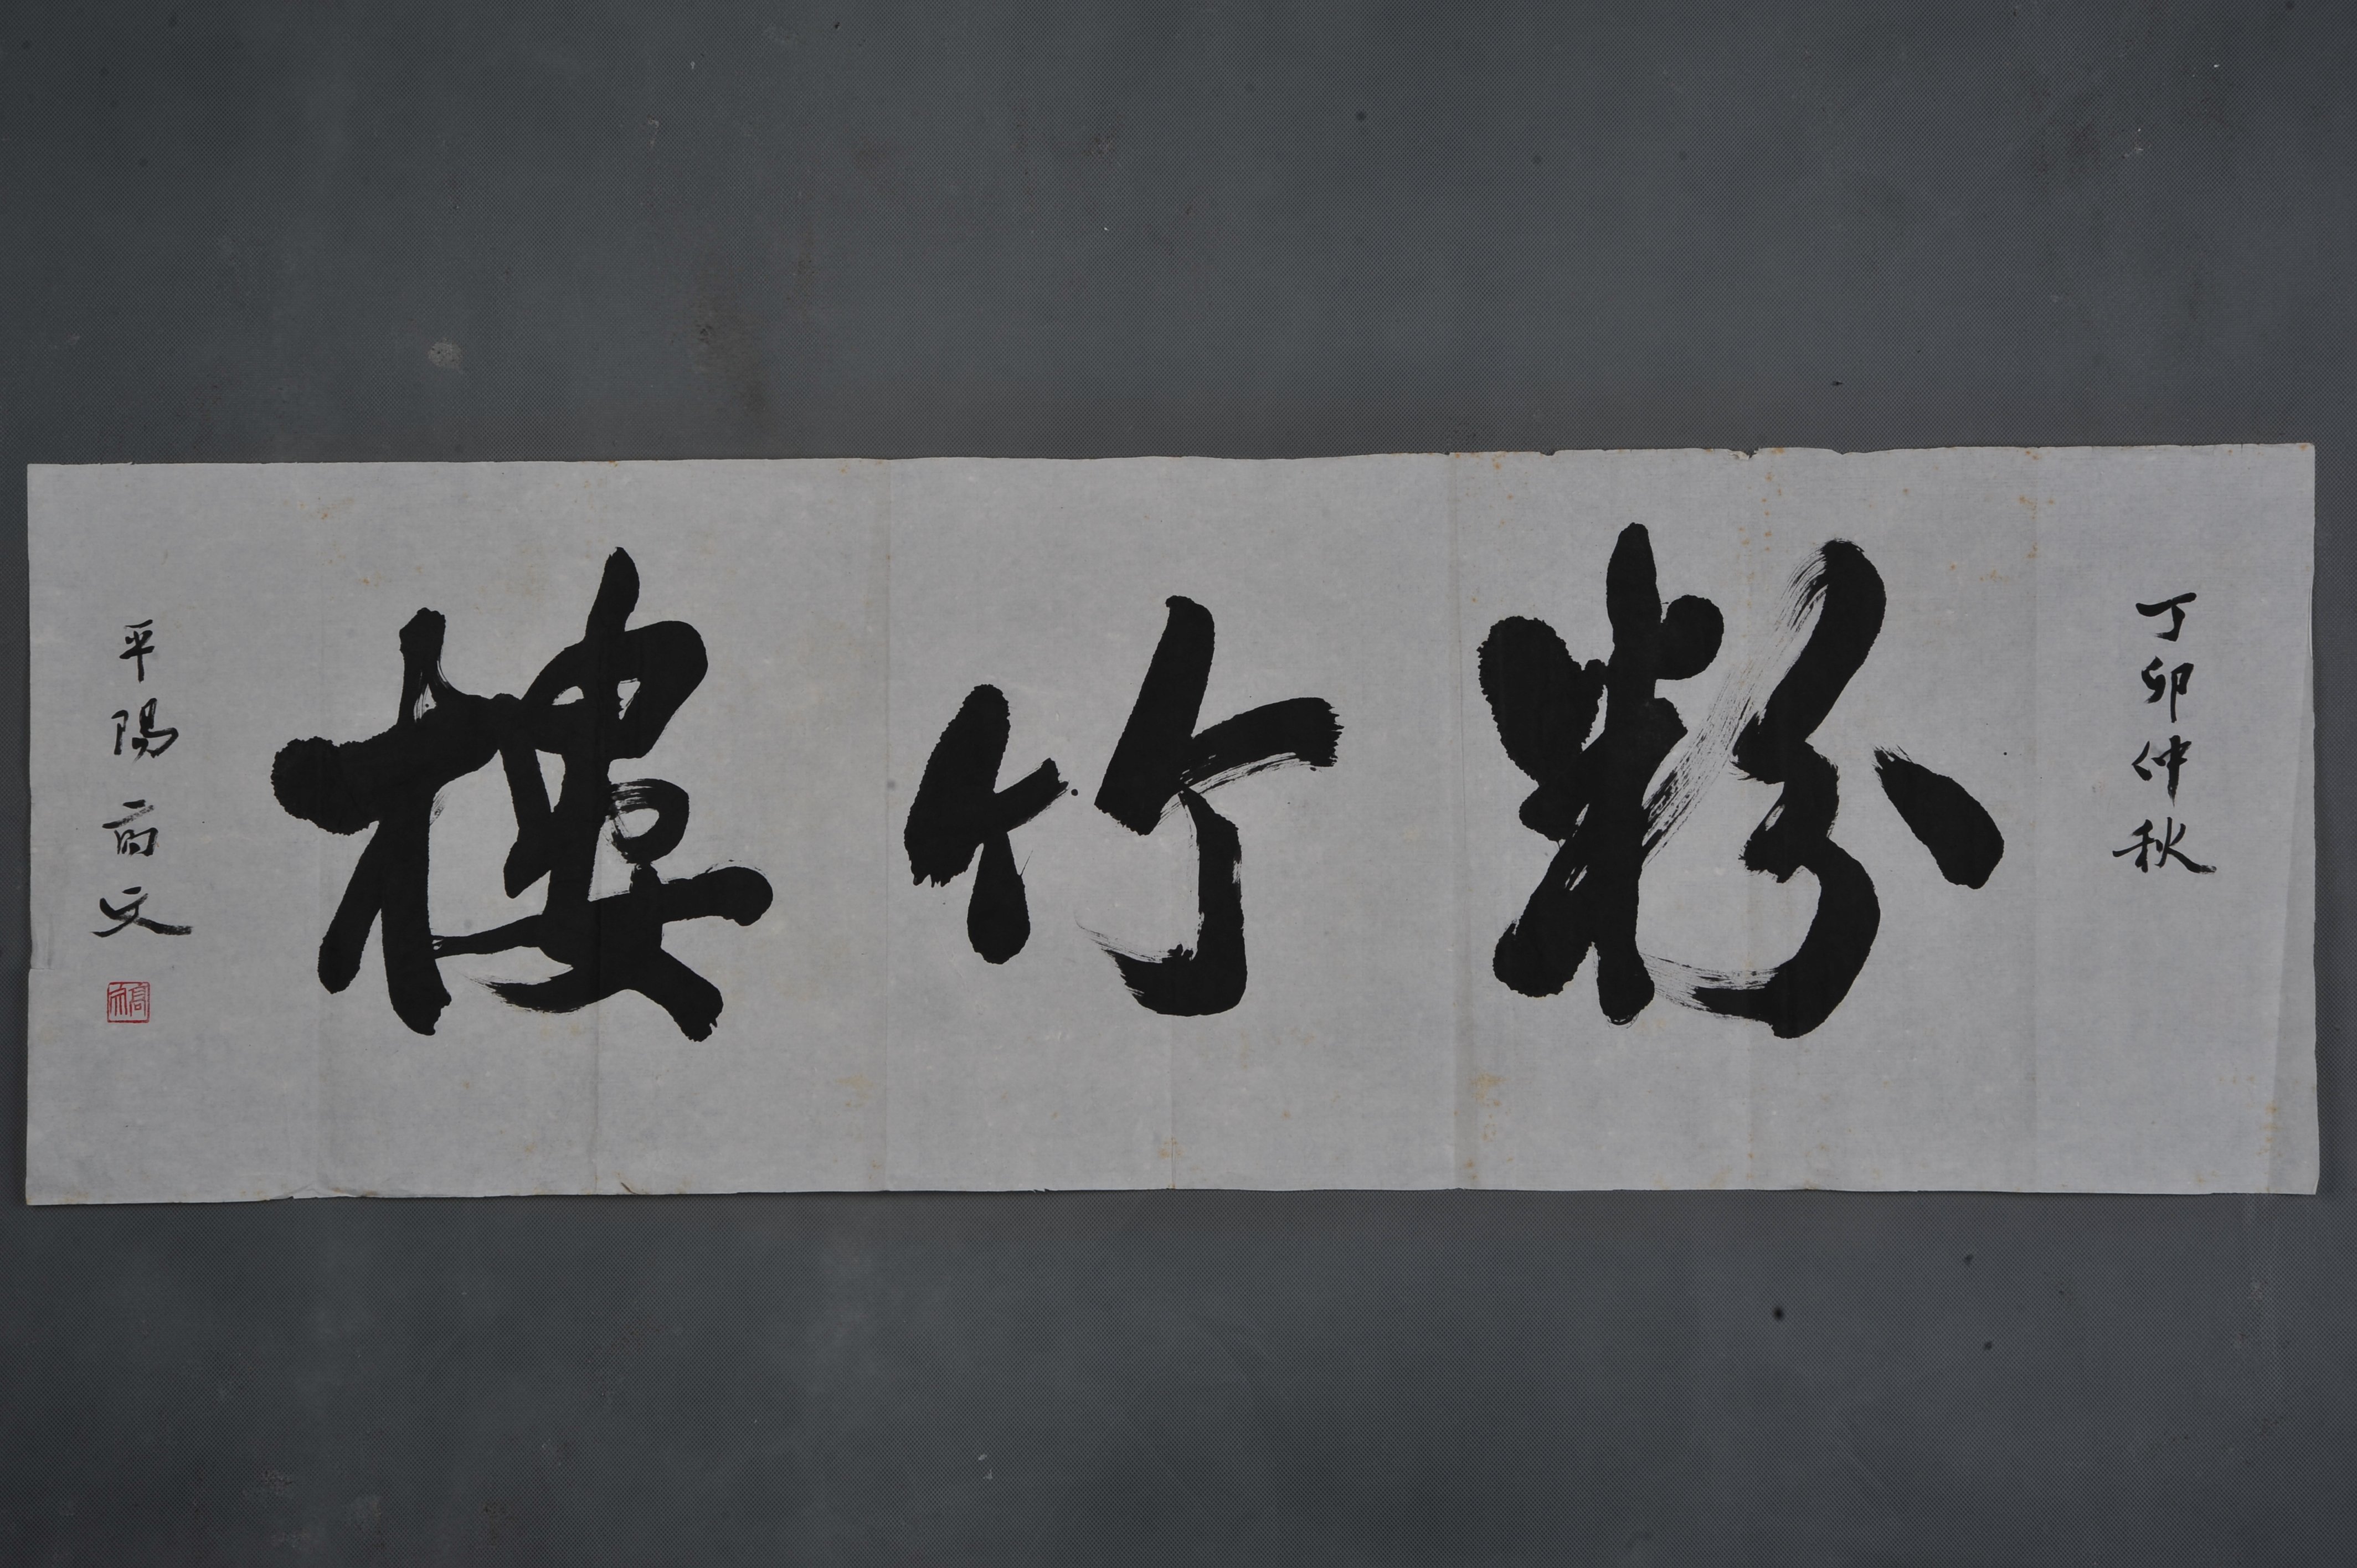 丁卯仲秋
粉竹樓
平陽高文